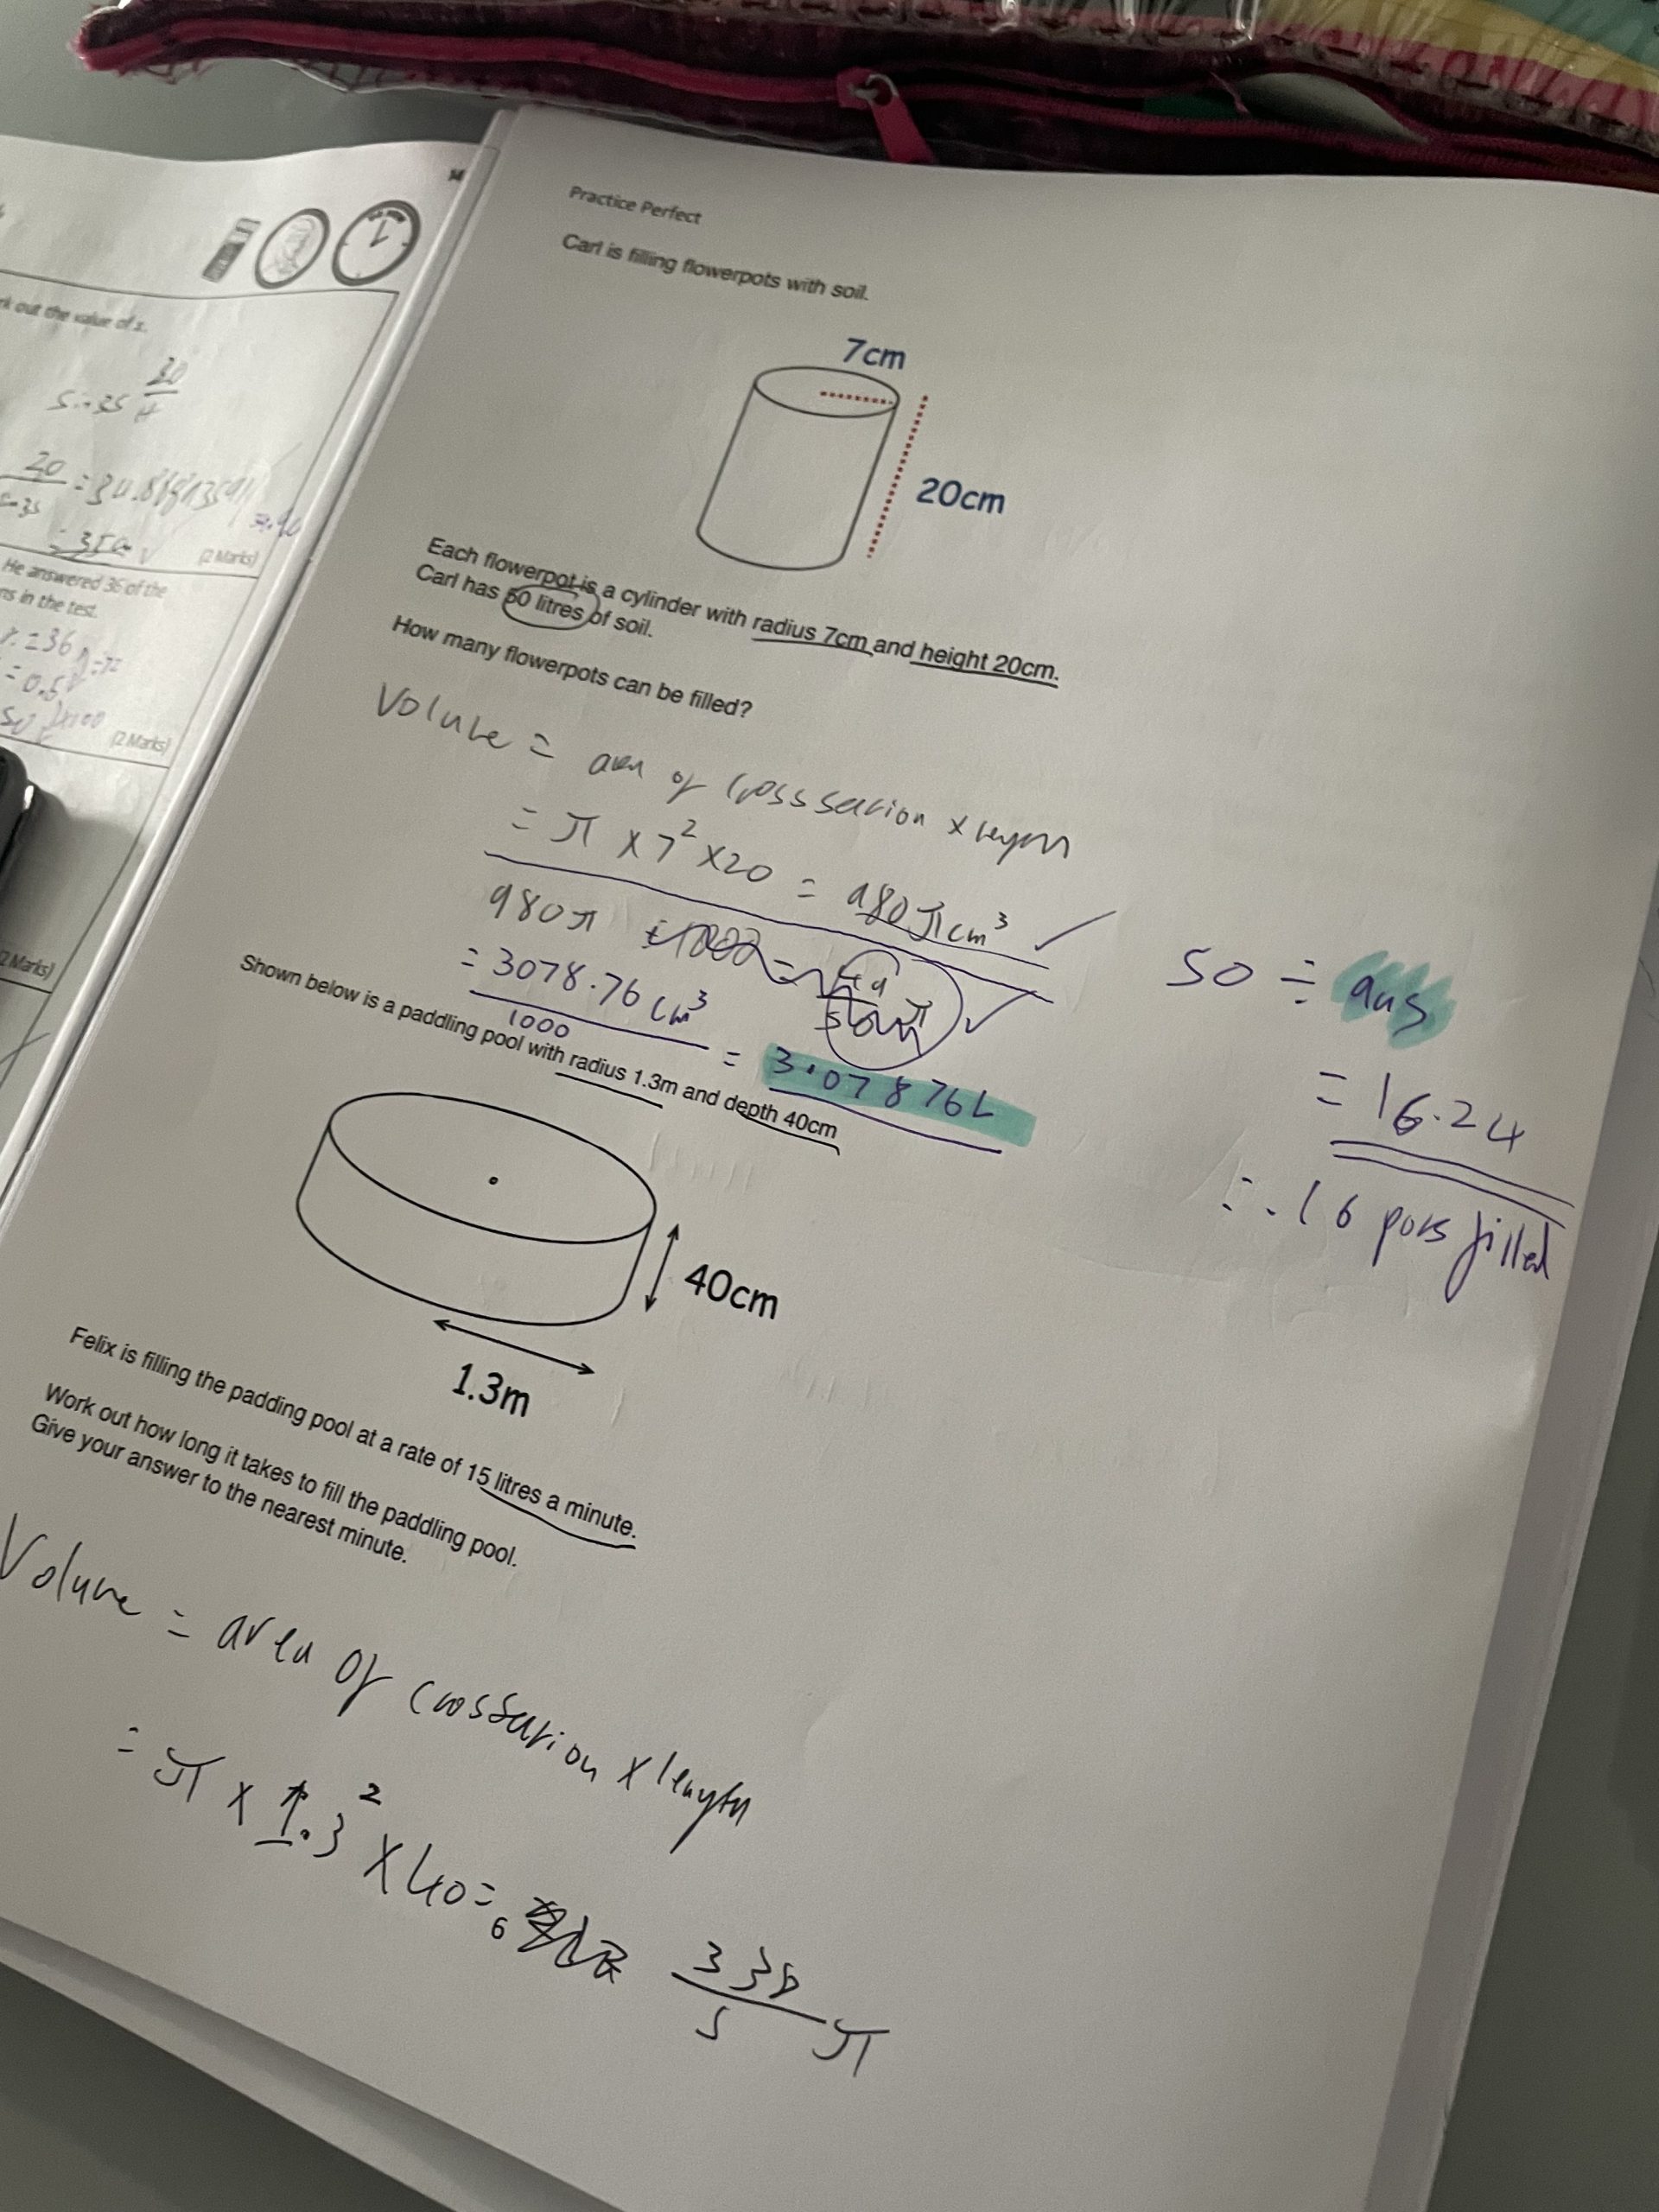 14
rk out the value of x.
20
sin 35 H
20
= 34.86
sin 35
(2 Marks)
He answered 36 of the
ns in the test.
= 36
= 0.5
(2 Marks)
2 Marks)
Practice Perfect
Carl is filling flowerpots with soil.
7cm
20cm
Each flowerpot is a cylinder with radius 7cm and height 20cm.
Carl has 50 litres of soil.
How many flowerpots can be filled?
Volume = area of cross section x length
= π x 7² x 20 = 980π cm³ ✓
980π ÷ 1000 = 49/50 π ✓
= 3078.76 cm³
1000
= 3.07876L
50 ÷ ans
= 16.24
∴ 16 pots filled
Shown below is a paddling pool with radius 1.3m and depth 40cm
40cm
1.3m
Felix is filling the padding pool at a rate of 15 litres a minute.
Work out how long it takes to fill the paddling pool.
Give your answer to the nearest minute.
Volume = area of crossection x length
= π x 1.3² x 40 = 338/5 π
6